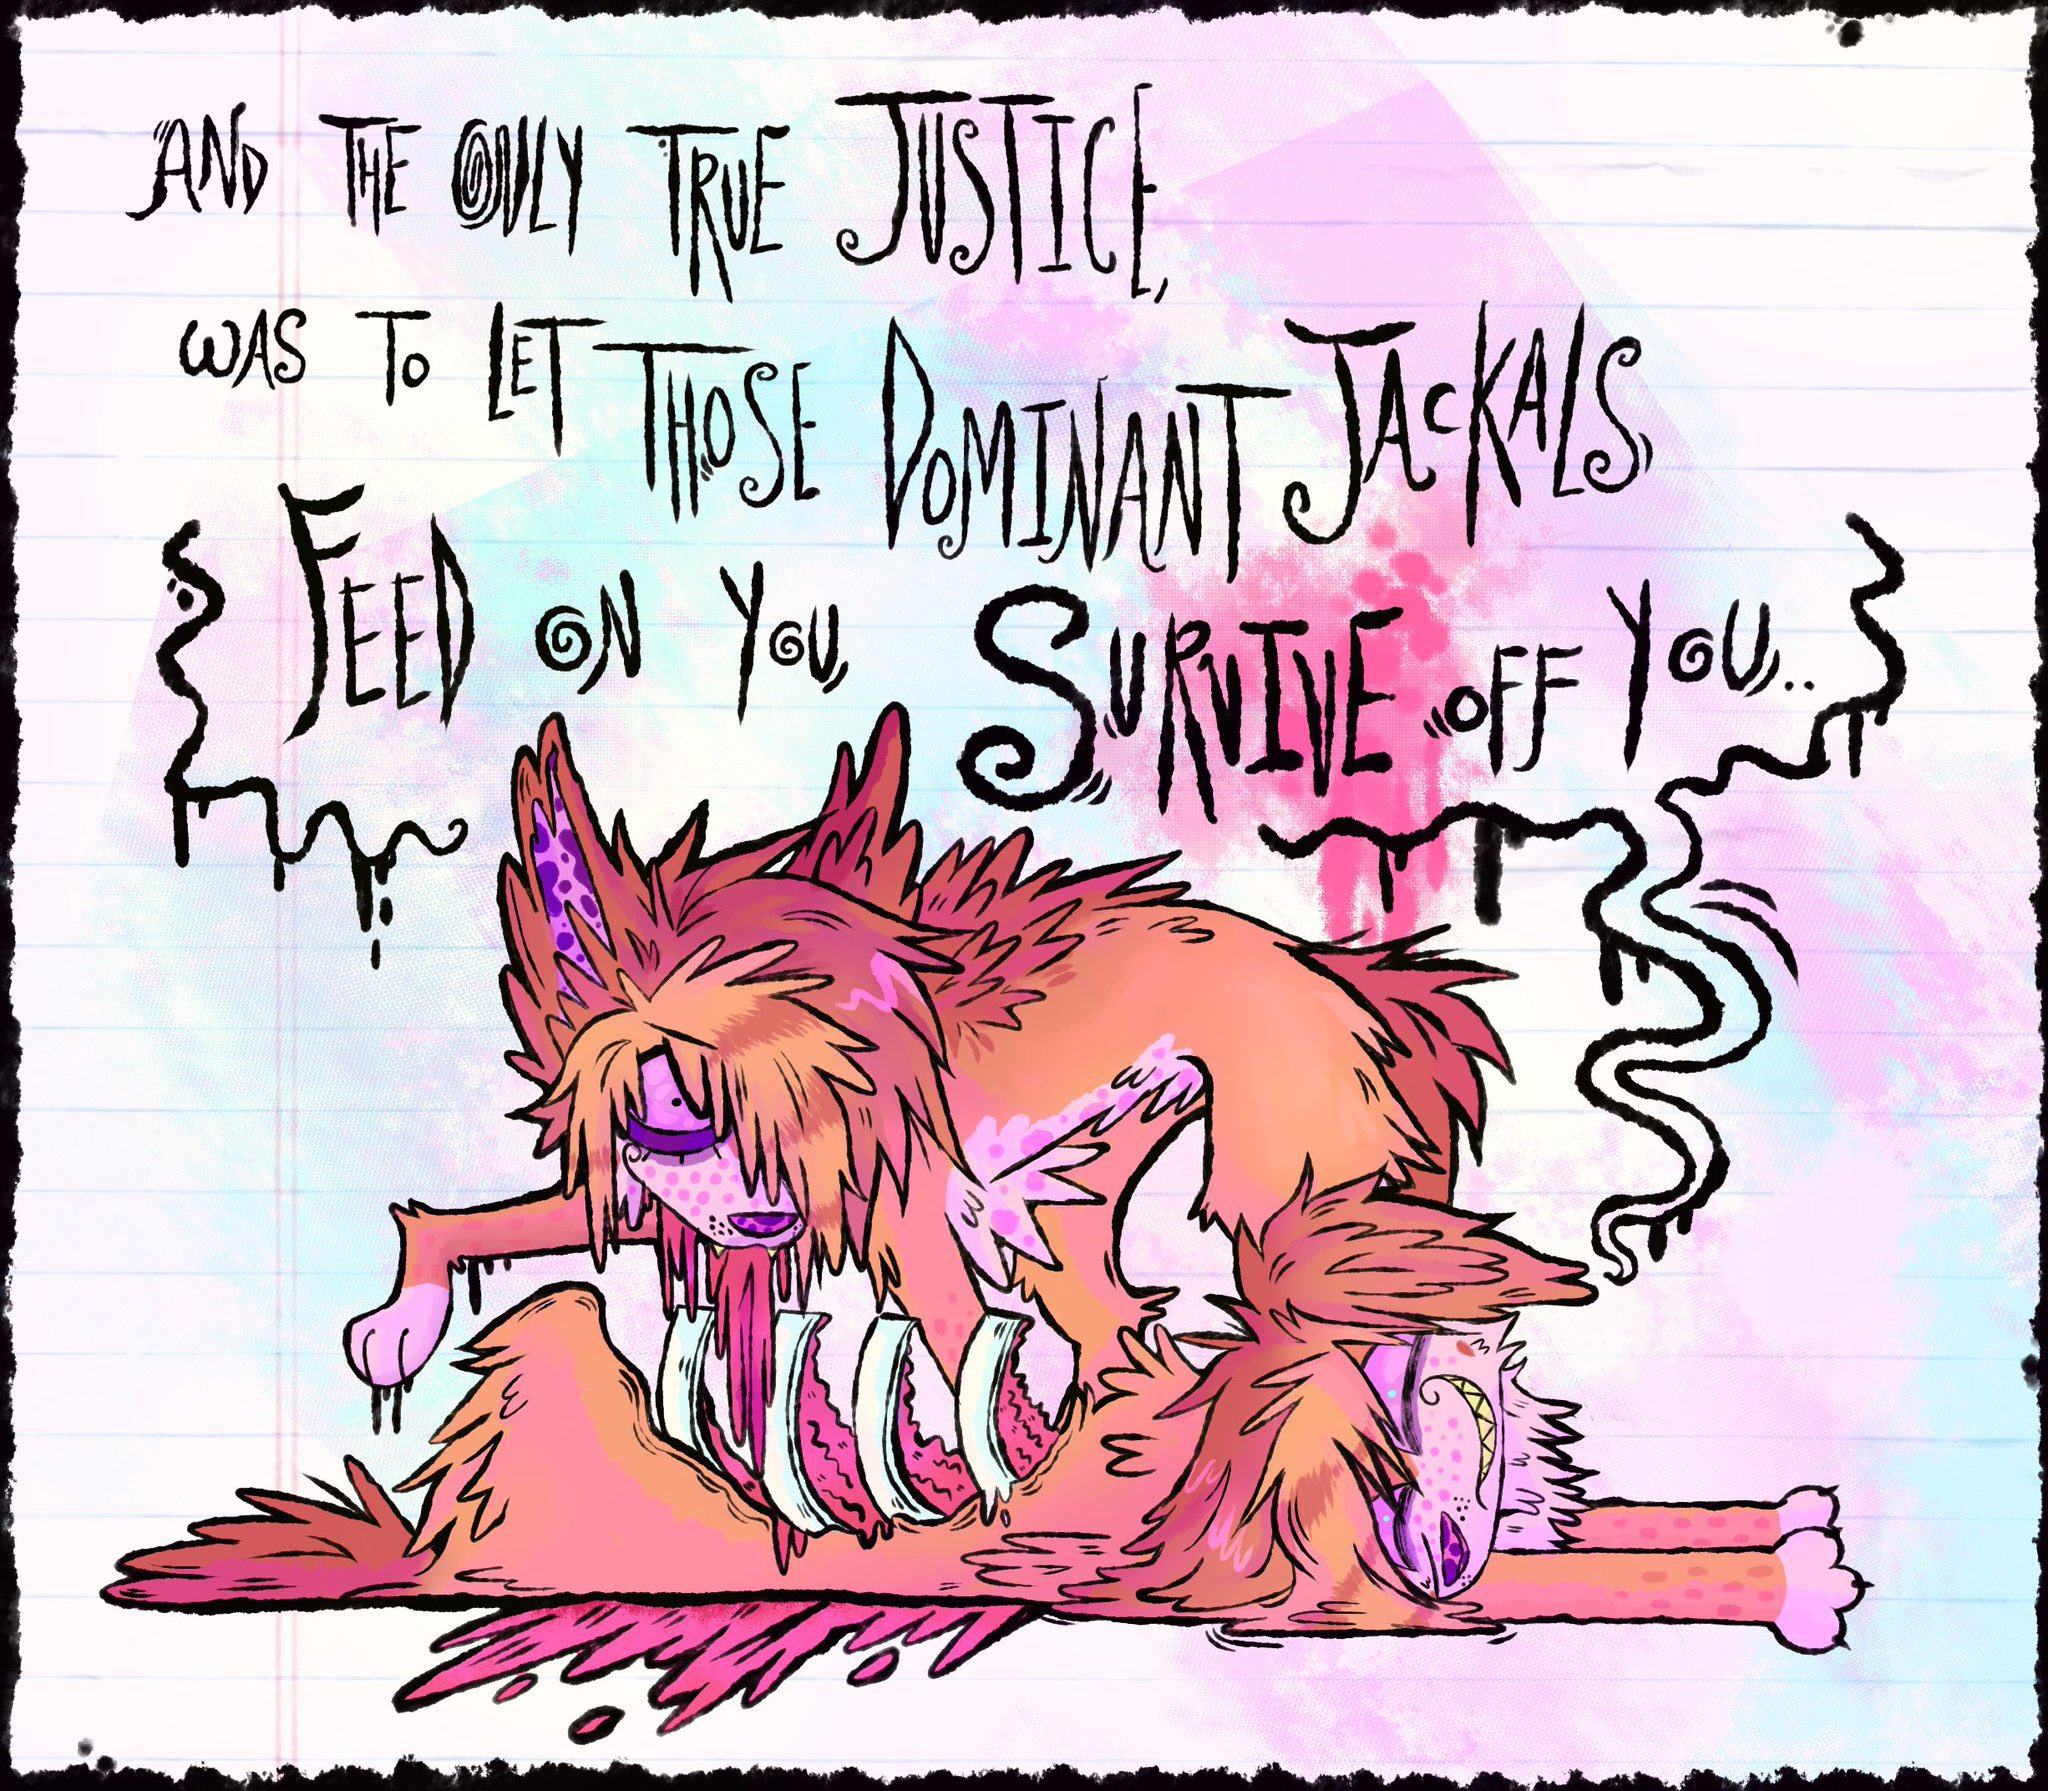 AND THE ONLY TRUE JUSTICE,
WAS TO LET THOSE DOMINANT JACKALS
FEED ON YOU, SURVIVE OFF YOU...